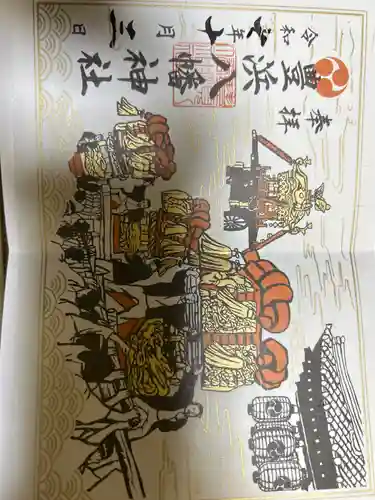 奉拝
豊浜八幡神社
令和六年十月 日